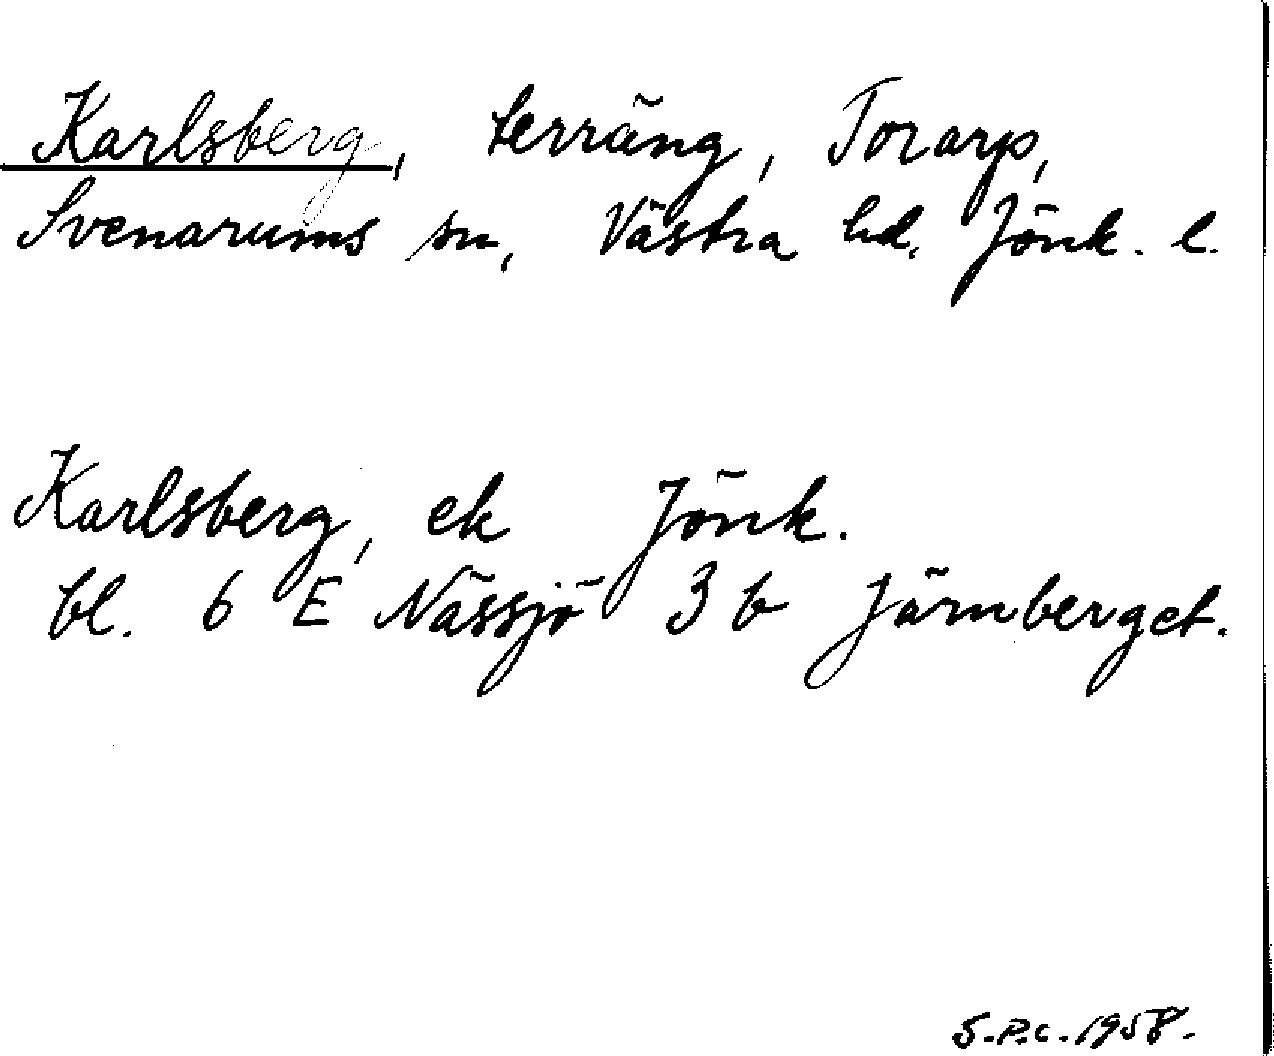 Karlsberg, terräng, Torarp,
Svenarums sn, Västra hd. Jönk. l.
Karlsberg, ek Jönk.
bl. 6 E Nässjö 3 b Järnberget.
S.P.C. 1958.